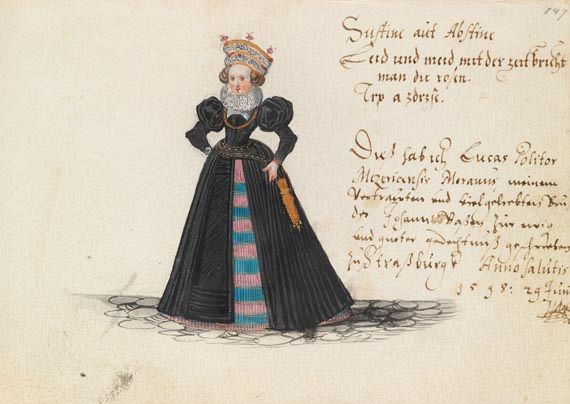 147
Sustine aut Abstine
Leid und meid mit der zeit bricht
man die rosen.
Trp a zdrzse.
Dies hab ich Lucas Politor
Mezericensis Moravus meinem
Vertrauten und vielgeliebten Bru
der Johann zur ewig
und guter gedechtnuß geschrieben
zu Straßburgk Anno salutis
1598: 29 Juni